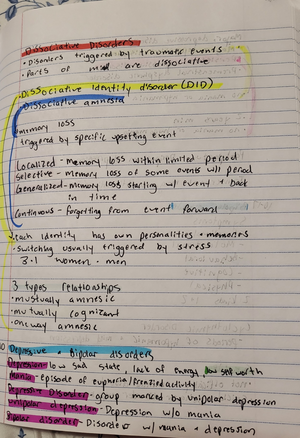 Dissociative Disorders
• Disorders triggered by traumatic events
• Parts of mind are dissociative
• Dissociative identity disorder (DID)
• Dissociative amnesia
memory loss
triggered by specific upsetting event
Localized - Memory loss within limited period
Selective - memory loss of some events w/i period
Generalized - Memory loss starting w/ event + back
in time
Continuous - Forgetting from event forward
each identity has own personalities + memories
• switching usually triggered by stress
3:1 women - men
3 types relationships
• mutually amnesic
• mutually cognizant
• one way amnesic
Depressive + Bipolar disorders
Depression: low sad state, lack of energy, low self worth
Mania: episode of euphoria/frenzied activity
Depressive Disorders: group marked by unipolar depression
Unipolar depression: Depression w/o mania
Bipolar disorder: Disorder w/ mania + depression